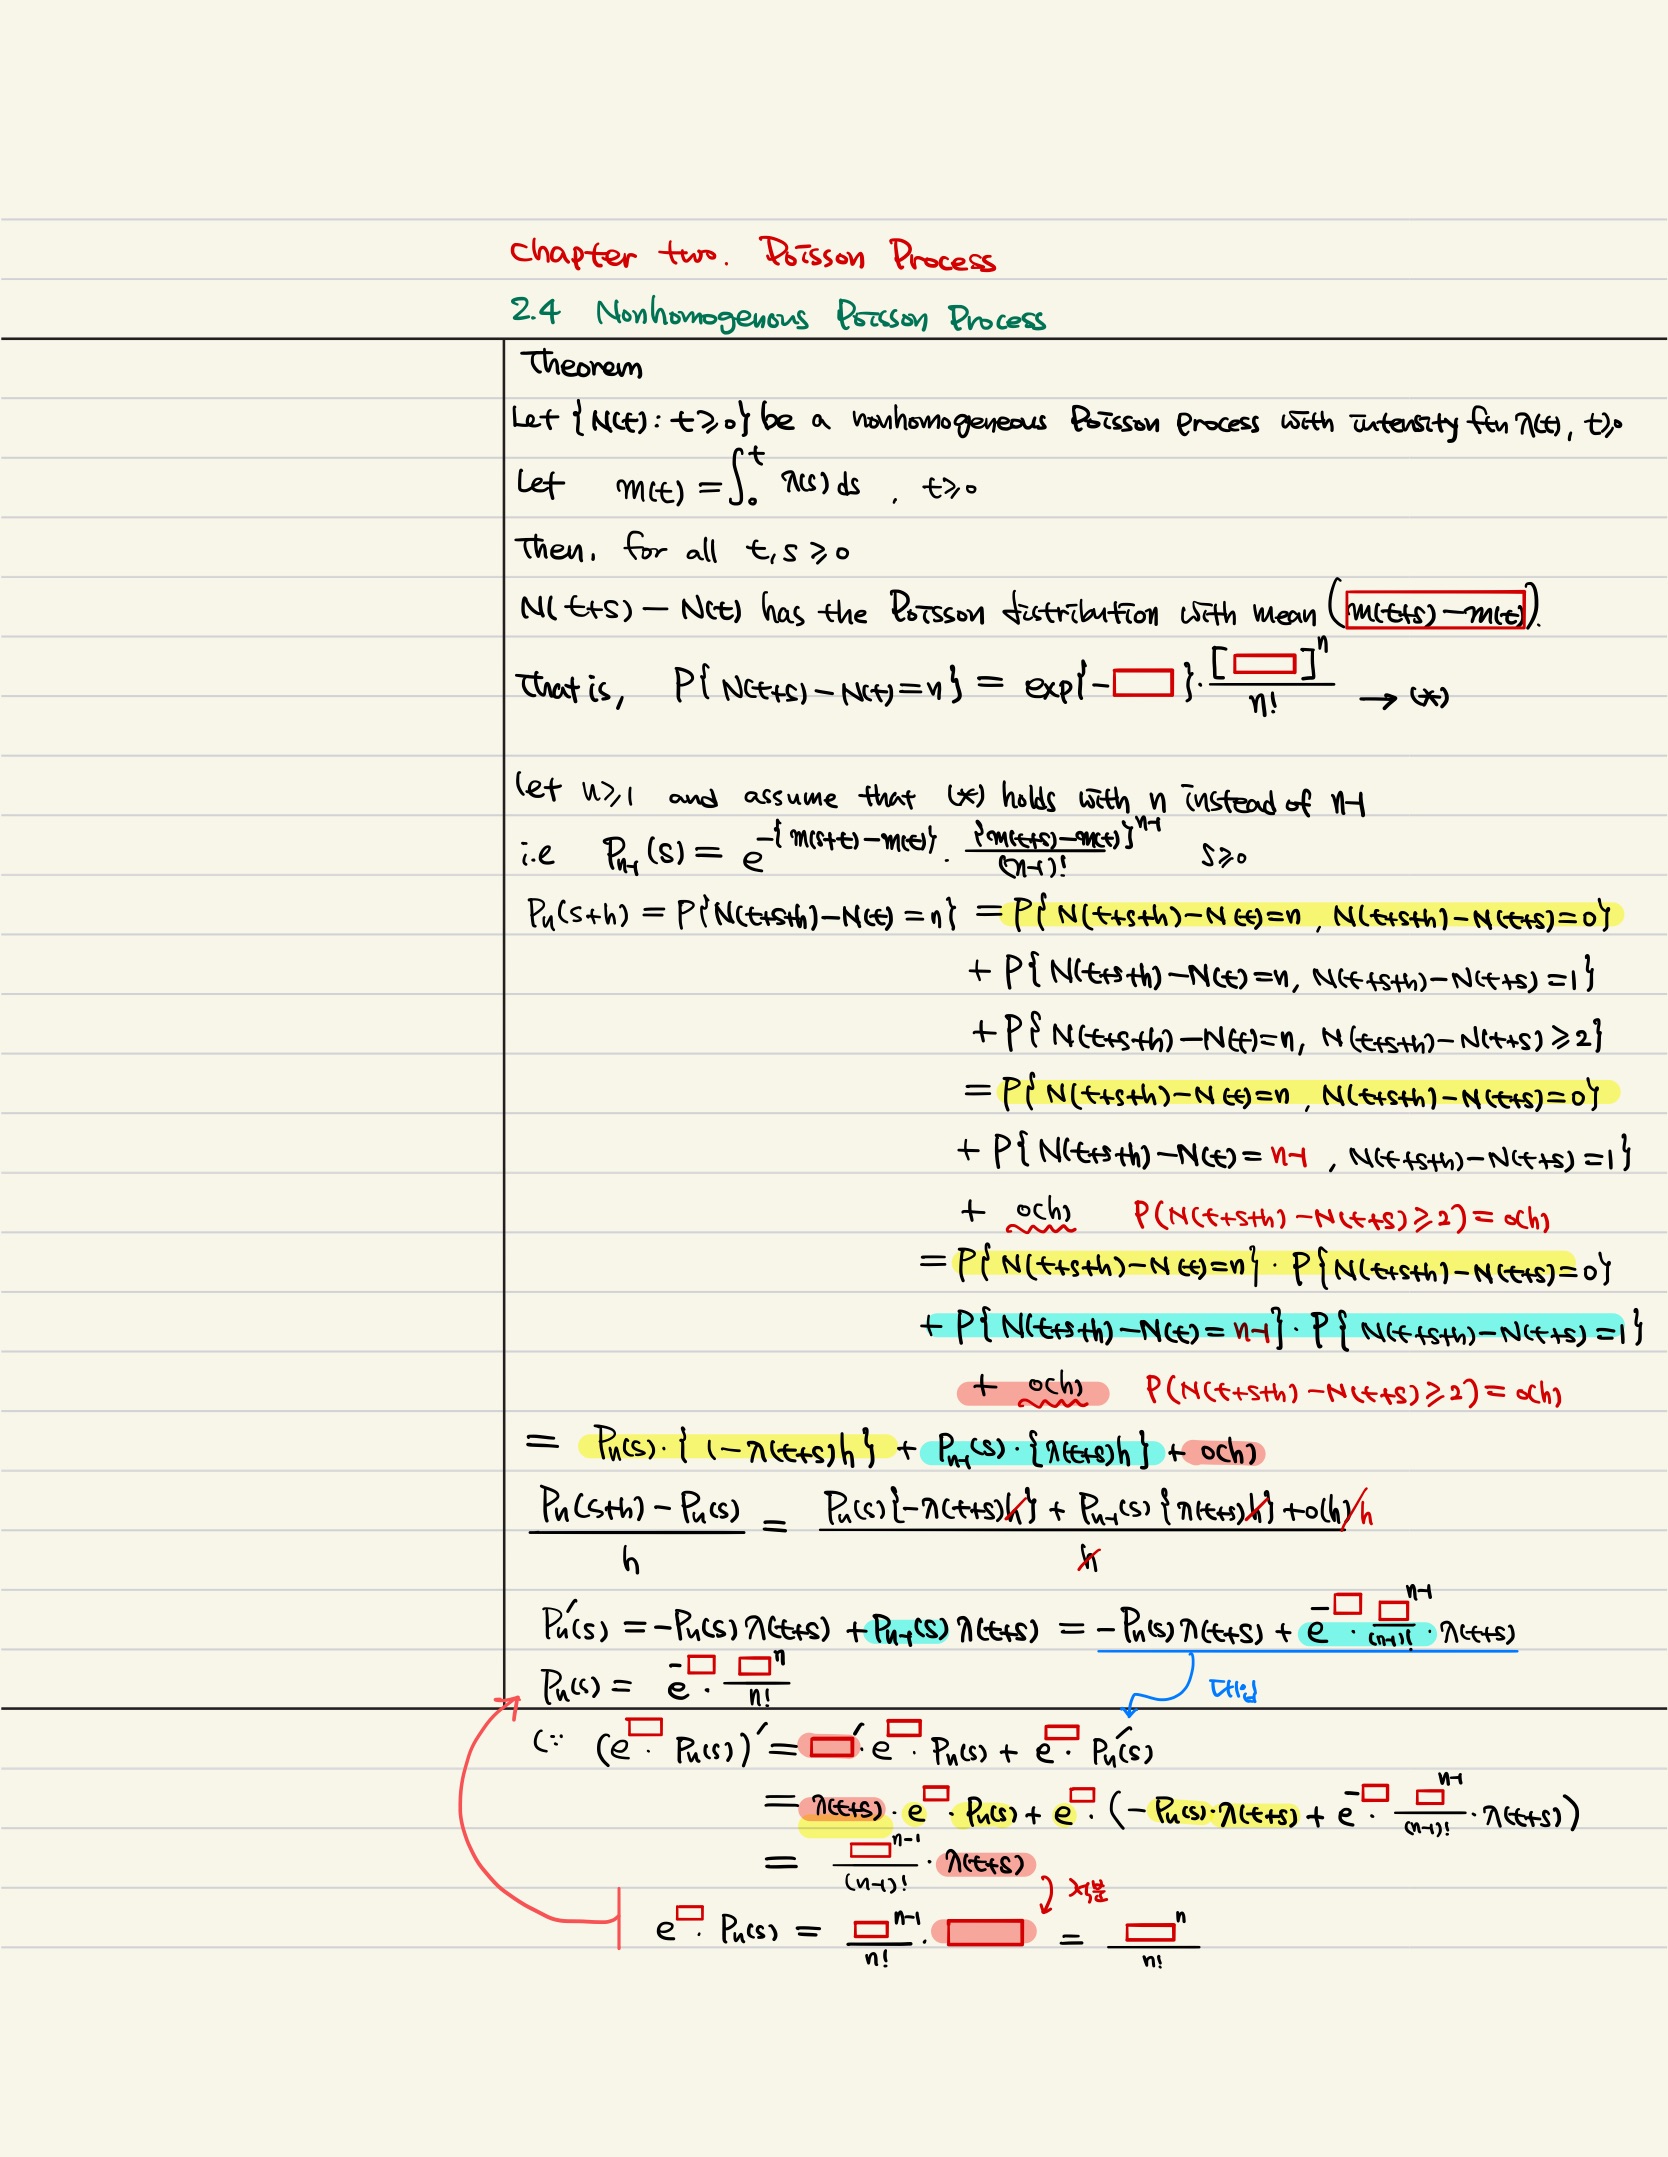 Chapter two. Poisson Process
2.4 Nonhomogenous Poisson Process
Theorem
Let {N(t) : t≥0} be a nonhomogeneous Poisson process with intensity ftn λ(t), t≥0
Let m(t) = ∫₀ᵗ λ(s) ds , t≥0
Then, for all t,s ≥0
N(t+s) − N(t) has the Poisson distribution with mean (m(t+s) − m(t)).
That is, P{N(t+s) − N(t) = n} = exp{−□}·[□]ⁿ/n! → (*)
Let n≥1 and assume that (*) holds with n instead of n-1
i.e Pn-1(s) = e^−{m(s+t)−m(t)} · {m(t+s)−m(t)}^n-1/(n-1)! s≥0
Pn(s+h) = P{N(t+s+h)−N(t) = n} = P{N(t+s+h)−N(t)=n, N(t+s+h)−N(t+s)=0}
+ P{N(t+s+h)−N(t)=n, N(t+s+h)−N(t+s)=1}
+ P{N(t+s+h)−N(t)=n, N(t+s+h)−N(t+s)≥2}
= P{N(t+s+h)−N(t)=n, N(t+s+h)−N(t+s)=0}
+ P{N(t+s+h)−N(t)= n-1, N(t+s+h)−N(t+s)=1}
+ o(h) P(N(t+s+h)−N(t+s)≥2) = o(h)
= P{N(t+s+h)−N(t)=n} · P{N(t+s+h)−N(t+s)=0}
+ P{N(t+s+h)−N(t)= n-1} · P{N(t+s+h)−N(t+s)=1}
+ o(h) P(N(t+s+h)−N(t+s)≥2) = o(h)
= Pn(s)·{1−λ(t+s)h} + Pn-1(s)·{λ(t+s)h} + o(h)
Pn(s+h) − Pn(s)/h = Pn(s){−λ(t+s)h} + Pn-1(s){λ(t+s)h} + o(h)/h/h
Pn′(s) = −Pn(s)λ(t+s) + Pn-1(s)λ(t+s) = −Pn(s)λ(t+s) + e^−□ · □^n-1/(n-1)! · λ(t+s)
Pn(s) = e^−□ · □ⁿ/n!
대입
(∵ (e^□ · Pn(s))′ = □′ · e^□ · Pn(s) + e^□ · Pn′(s)
= λ(t+s) · e^□ · Pn(s) + e^□ · (−Pn(s)·λ(t+s) + e^−□ · □^n-1/(n-1)! · λ(t+s))
= □^n-1/(n-1)! · λ(t+s)
적분
e^□ · Pn(s) = □^n-1/n! · □ = □ⁿ/n!